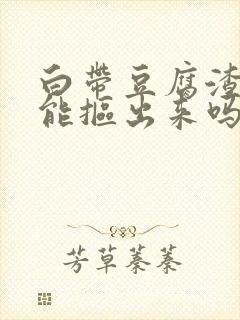 白带豆腐渣
能抠出来吗
芳草萋萋